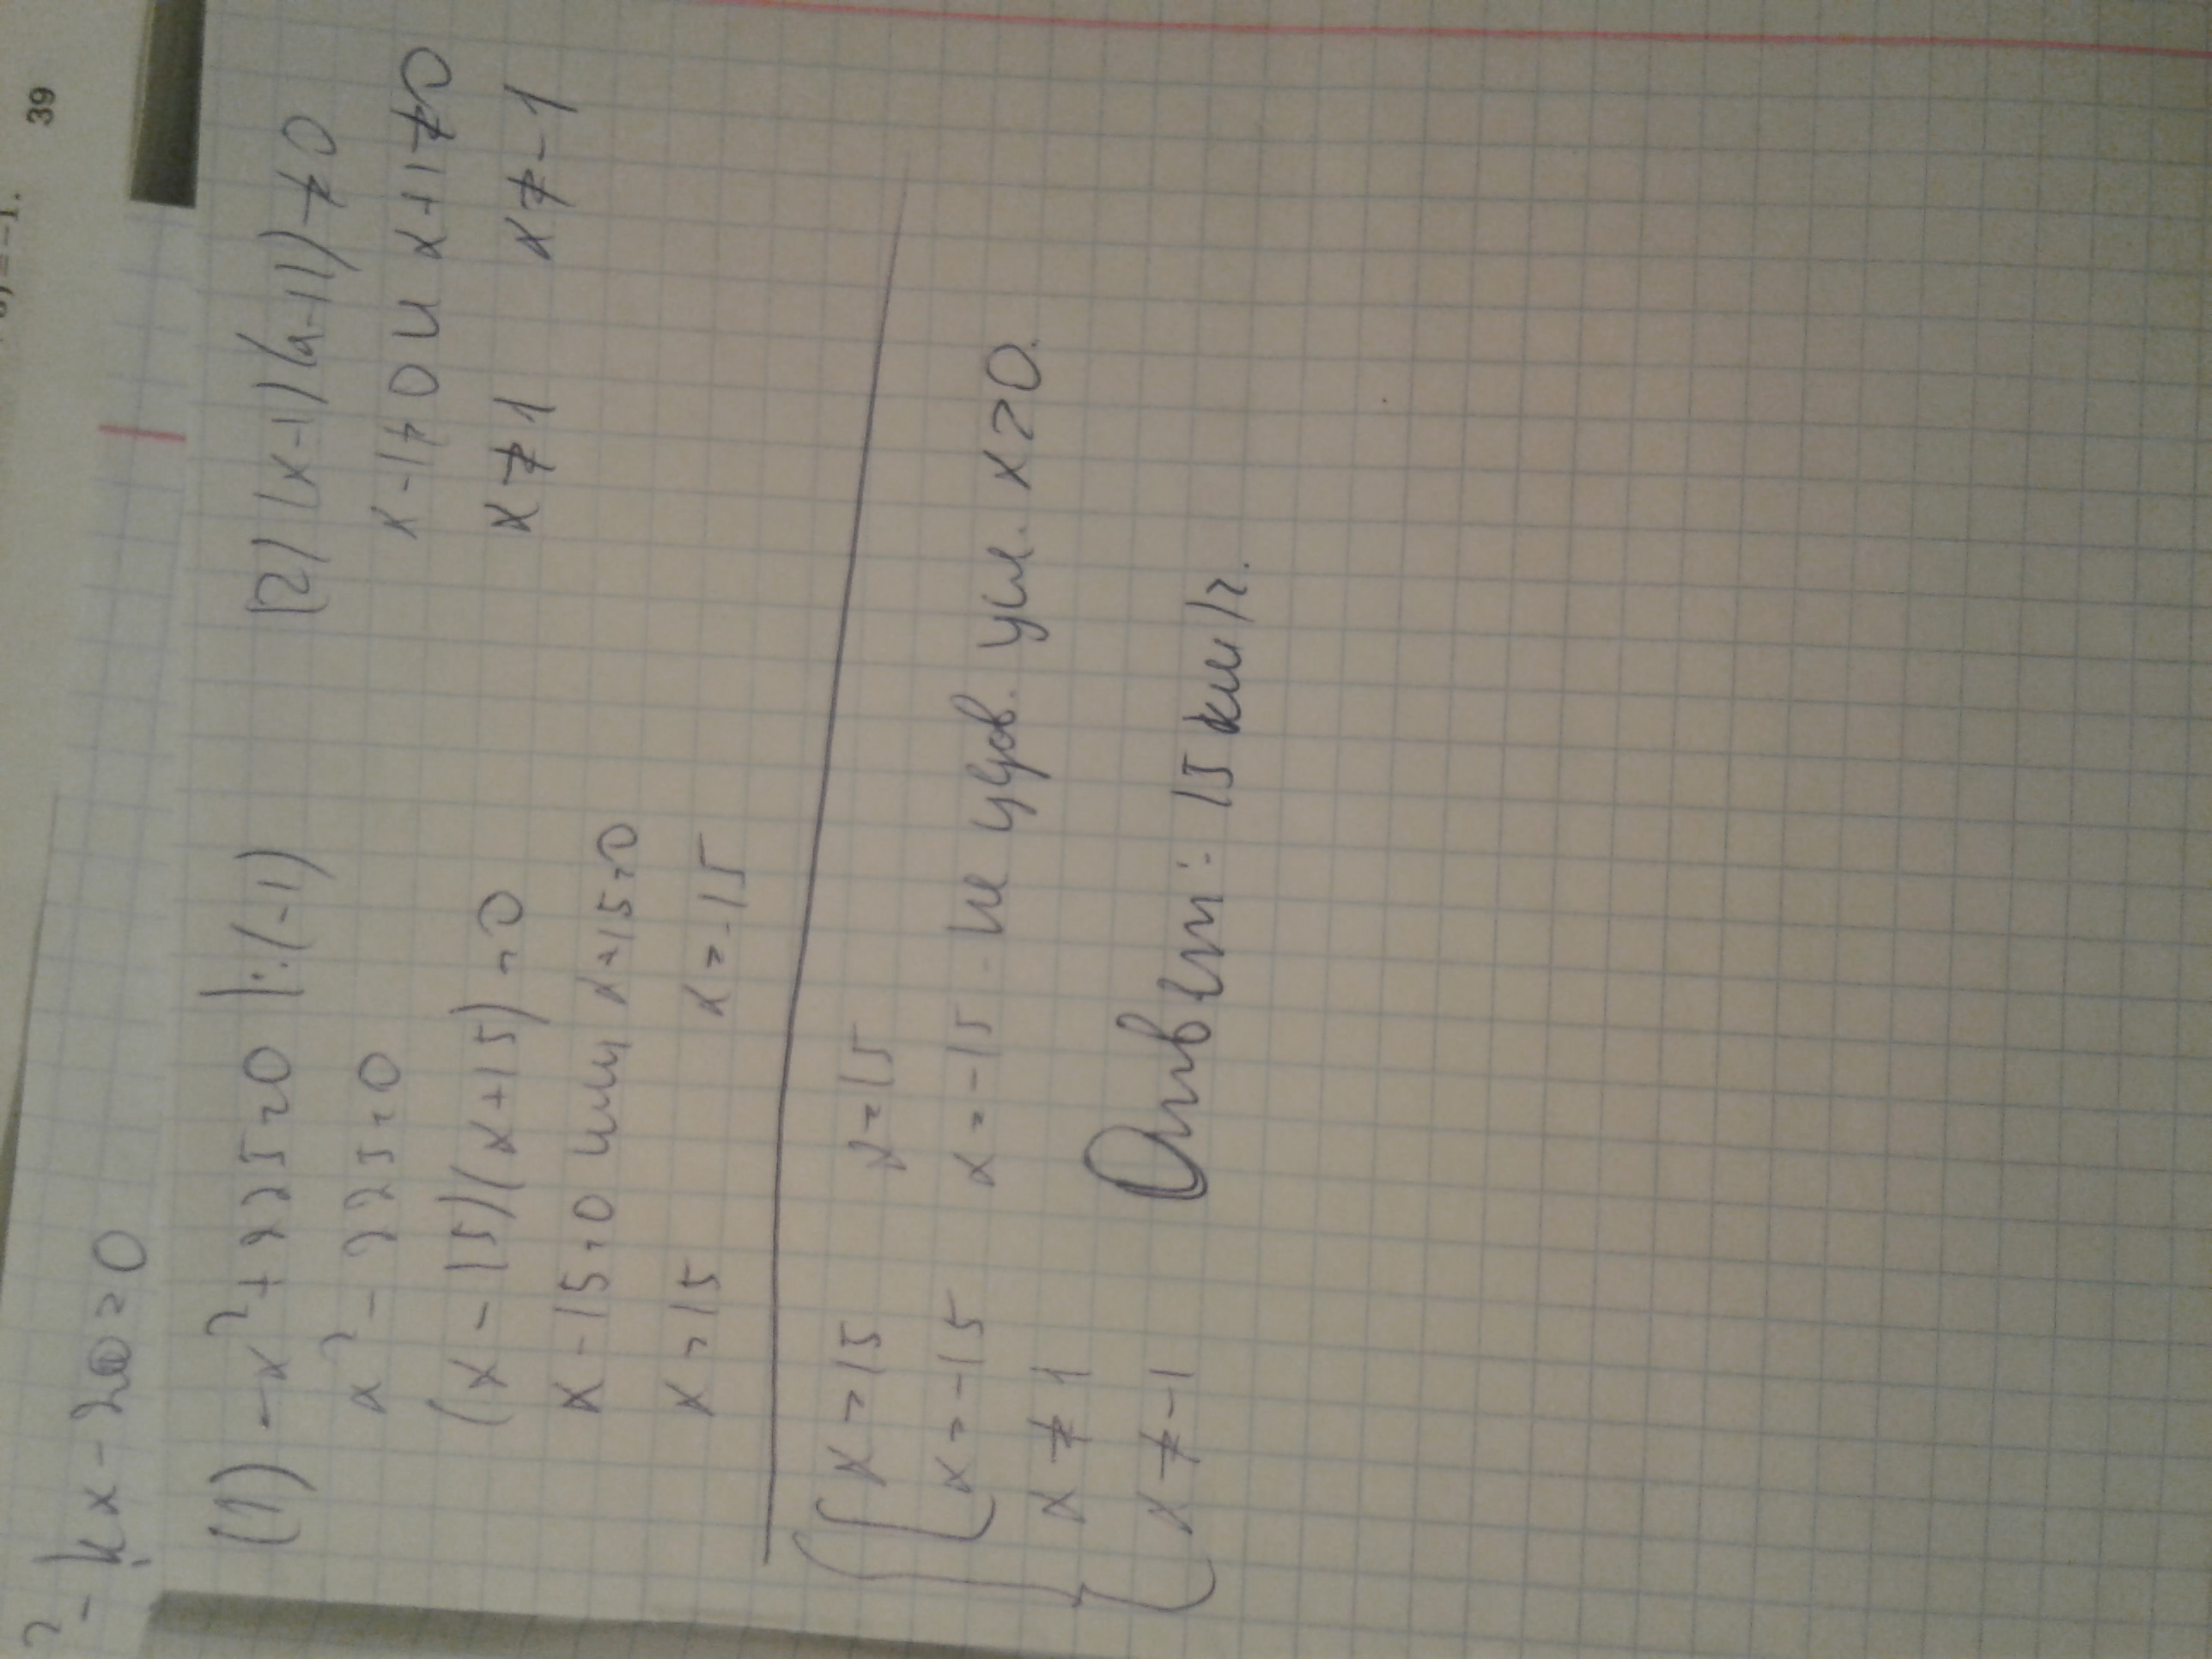 39
= -1.
² - kx - 200 = 0
(1) -x² + 225 = 0 |:(-1)
x² - 225 = 0
(x - 15)(x + 15) = 0
x - 15 = 0 или x + 15 = 0
x = 15 x = -15
(2) (x - 1)(x + 1) ≠ 0
x - 1 ≠ 0 и x + 1 ≠ 0
x ≠ 1 x ≠ -1
x = 15 x = 15
x = -15 x = -15 - не удов. усл. x > 0.
x ≠ 1
x ≠ -1
Ответ: 15 км/ч.